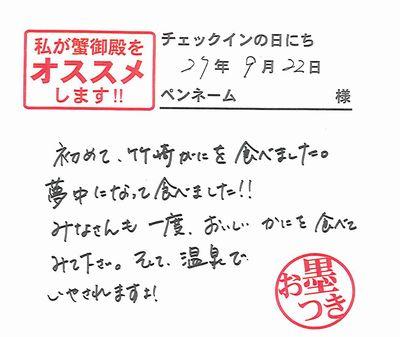 私が蟹御殿を
オススメ
します!!
チェックインの日にち
27年9月22日
ペンネーム 様
初めて、竹崎かにを食べました。
夢中になって食べました!!
みなさんも一度、おいしいかにを食べて
みて下さい。そして、温泉で
いやされますよ!
お墨つき